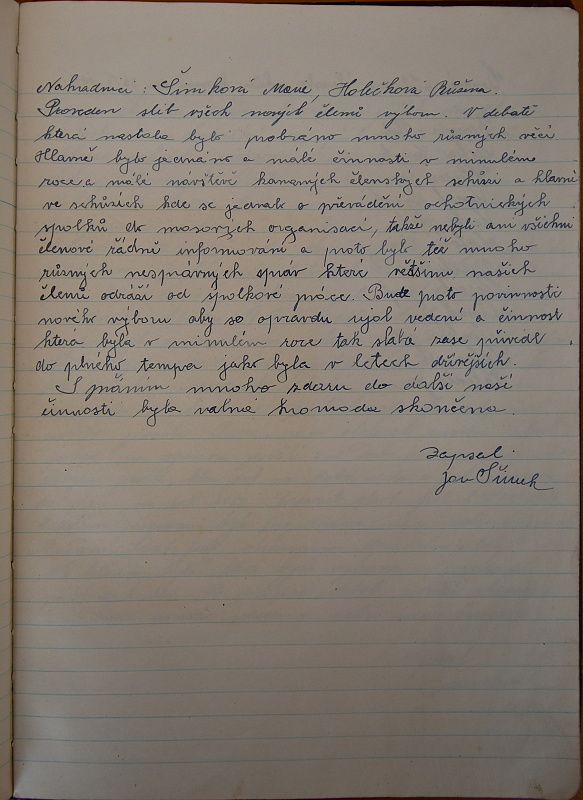 Nahradníci: Šimková Marie, Holečková Růžena.
Proveden slib všech nových členů výboru. V debatě
která nastala bylo probráno mnoho různých věcí
Hlavně bylo jednáno o málé činnosti v minulém
roce a málé návštěvě konaných členských schůzí a hlavně
ve schůzích kde se jednalo o převádění ochotnických
spolků do masových organisací, takže nebyli ani všichni
členové řádně informováni a proto bylo též mnoho
různých nesprávných zpráv které většinu našich
členů odráží od spolkové práce. Bude proto povinností
nového výboru aby se opravdu ujal vedení a činnost
která byla v minulém roce tak slabá zase přivedl
do plného tempa jako byla v letech dřívějších.
S přáním mnoho zdaru do další naší
činnosti byla valná hromada skončena.
zapsal.
Jan Šimek